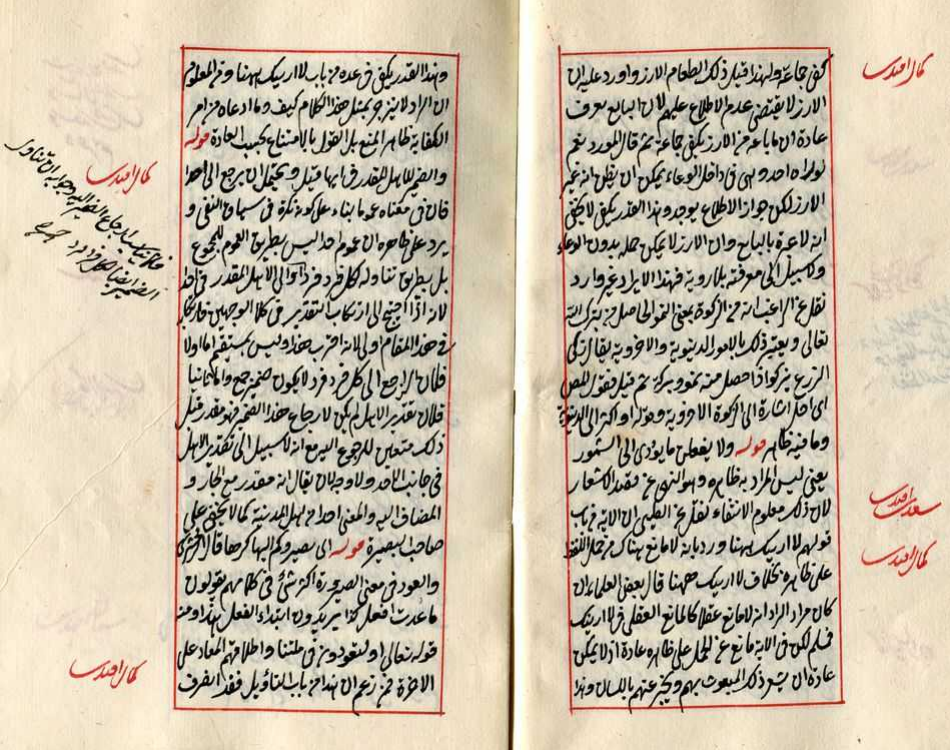 كفى جماعة ولهذا قيل ذلك الطعام الارز واورد عليه ان
الارز لا يقتضى عدم الاطلاع عليهم لان البايع يعرف
عادة ان ما باعه من الارز يكفى جماعة ثم قال المورد نعم
لو اطراه احد وهى فى داخل الوعاء يمكن ان يظن انه غير
الارز لكن جواز الاطلاع يوجد وهذا القدر يكفى لا يخفى
انه لا عبرة بالبايع وان الارز لا يمكن حمله بدون الوعاء
ولا سبيل الى معرفته بلا روية فهذا الايراد غير وارد
نقل عن الراغب انه من الزكوة بمعنى النمو الحاصل من بركة الله
تعالى ويعتبر ذلك بالامور الدنيوية والاخروية يقال زكى
الزرع يزكو اذا حصل منه نمو وبركة ثم قيل فقول المص
اى احل اشارة الى الزكوة الاخروية وقوله او اكثر الى الدنيوية
وما فيه ظاهر قوله ولا يفعلن ما يؤدى الى الشعور
يعنى ليس المراد به ظاهره وهو النهى عن قصد الاشعار
لان ذلك معلوم الانتفاء نقل عن الطيبى ان الاية من باب
قولهم لا ارينك ههنا ورد بانه لا مانع هناك من حمل اللفظ
على ظاهره بخلاف لا ارينك ههنا قال بعض العلماء ان
كان مراد الراد انه لا مانع عقلا كالمانع العقلى فى لا ارينك
فمسلم لكن فى الاية مانع عن الحمل على ظاهره عادة اذ لا يمكن
عادة ان يشعر ذلك المبعوث بهم ويخبر عنهم باللسان وهذا
كمال افندى
سعدى افندى
كمال افندى
وهذا القدر يكفى فى عده من باب لا ارينك ههنا ومن المعلوم
ان الراد لا ينزجر بمثل هذا الكلام كيف وما ادعاه من امر
الكفاية ظاهر المنع بل القول بالامتناع بحسب العادة قوله
والضمير للاهل المقدر فى ايها قيل ويحتمل ان يرجع الى احدا
فان فى معناه عموما بناء على كونه نكرة فى سياق النفى و
يرد على ظاهره ان عموم احد ليس بطريق العموم للمجموع
بل بطريق تناوله كل فرد فرد او الى الاهل المقدر فى احدا
لانه اذا احتيج الى ارتكاب التقدير فى كلا الوجهين
فى هذا المقام اولى لانه اقرب هذا وليس بمستقيم اما اولا
فلان الراجع الى كل فرد فرد لا يكون ضمير جمع واما ثانيا
فلان تقدير الاهل لم يكن لارجاع هذا الضمير فهو مقدر قبل
ذلك متعين للرجوع اليه مع انه لا سبيل الى تقدير الاهل
فى جانب الاحد ولا وجه لان يقال انه مقدر مع الجار و
المضاف اليه والمعنى احدا من اهل المدينة كما لا يخفى على
صاحب البصيرة قوله اى يصيروكم اليها كرها قال الزمخشرى
والعود فى معنى الصيرورة اكثر شئ فى كلامهم يقولون
ما عدت افعل كذا يريدون ابتداء الفعل بهذا ومنه
قوله تعالى او لتعودن فى ملتنا واطلاقهم المعاد على
الاخرة فمن زعم ان هذا من باب التأويل فقد انصرف
كمال افندى
ارجاع الضمير اليه
كمال افندى